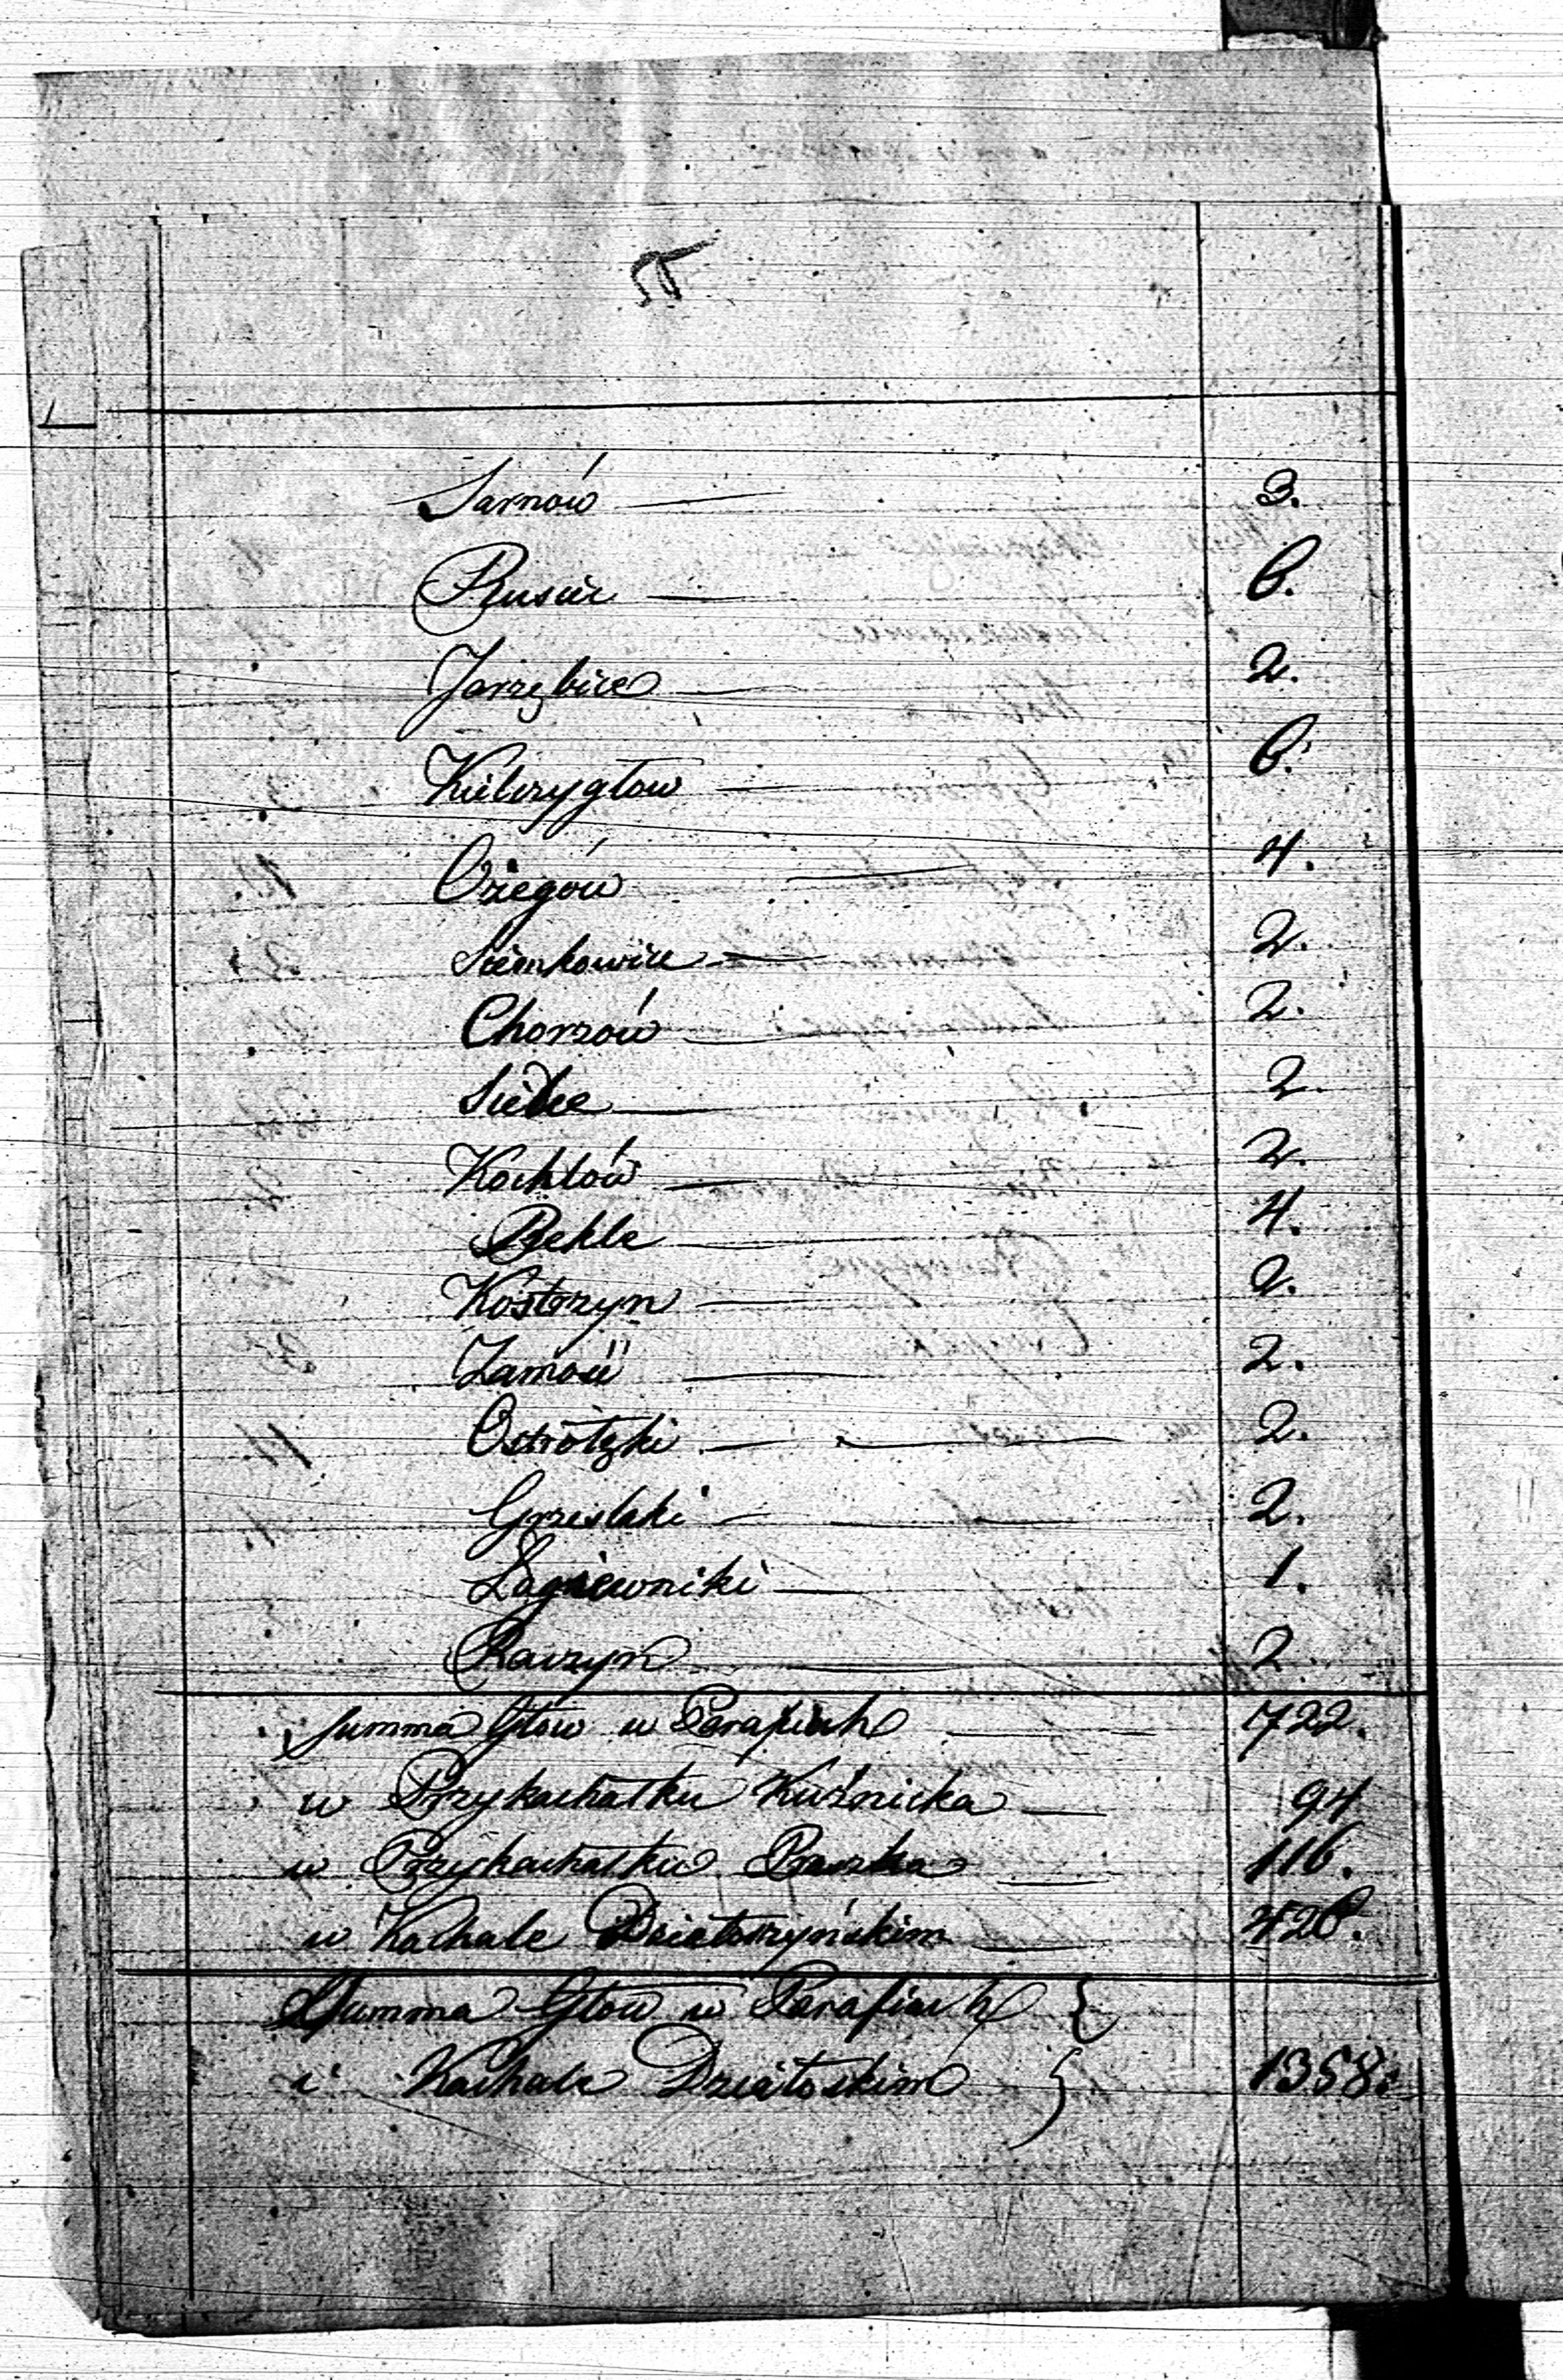 55
Sarnów 3.
Rusiec 6.
Jarzębice 2.
Kiełczygłow 6.
Ożegów 4.
Siemkowice 2.
Chorzów 2.
Siedlce 2.
Kochłów 2.
Bekle 4.
Kostrzyn 2.
Zamość 2.
Ostrołęki 2.
Grześlaki 2.
Łagiewniki 1.
Raczyn 2.
Summa Głow w Parafiach 722.
w Przykachałku Kuźnicka 94
w Przykachałku Praszka 116.
w Kachale Działoszyńskim 426.
Summa Głow w Parafiach
i Kachale Działoskim 1358.